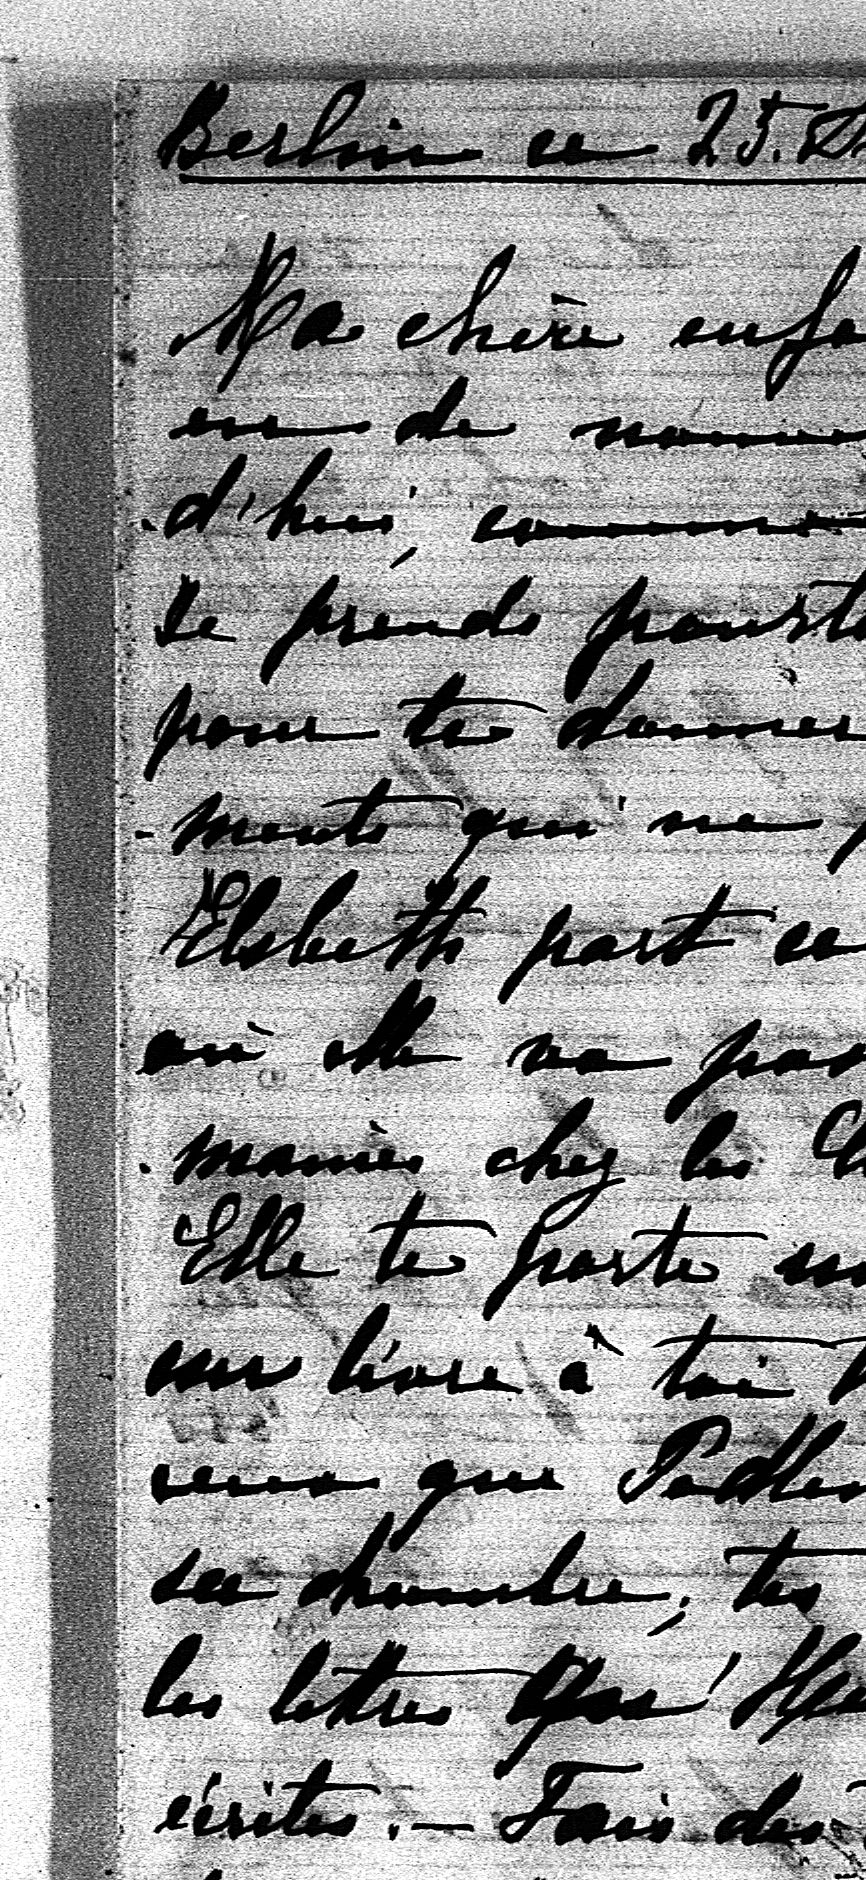 Berlin ce 25. D
Ma chère enfa
de nouve
d'hui, comme
Je prends
pour te donner
-ments qui ne p
Elsbeth part ce
où elle va pas
chez les
Elle te porte un
livre à toi
que
sa chambre, tes
les lettres que
écrites. — Fais des